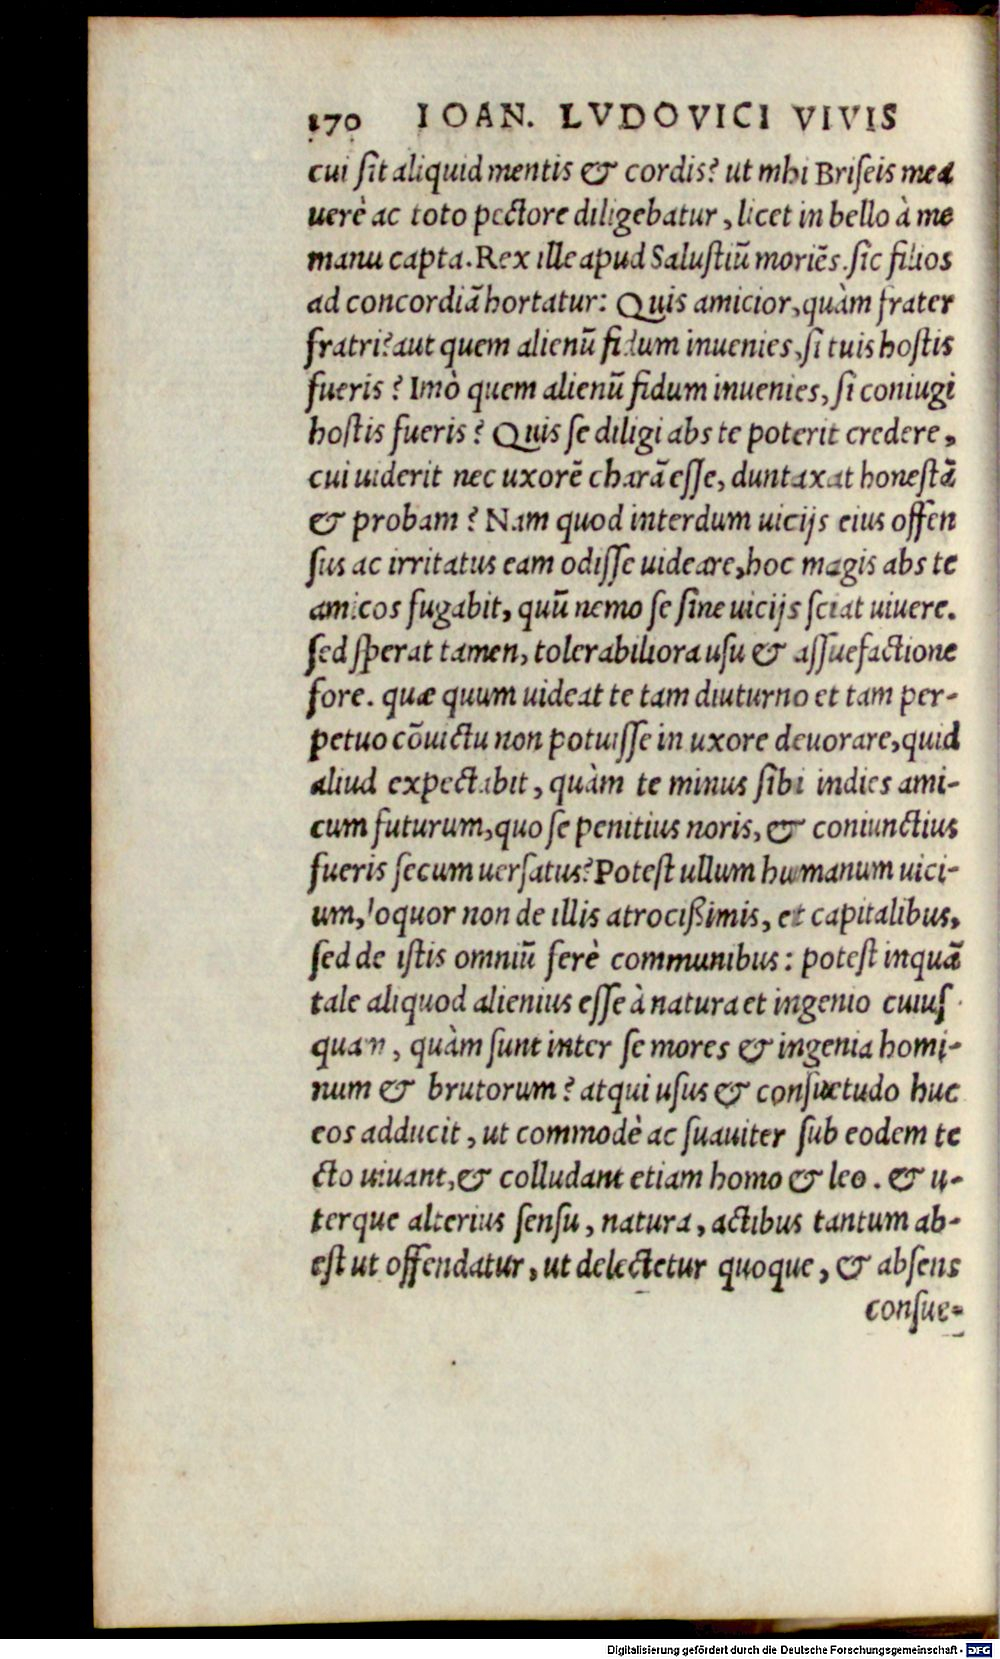 170 IOAN. LVDOVICI VIVIS
cui ſit aliquid mentis & cordis? ut mhi Briſeis mea
uerè ac toto pectore diligebatur, licet in bello à me
manu capta. Rex ille apud Saluſtiū moriēs. ſic filios
ad concordiā hortatur: Quis amicior, quàm frater
fratri? aut quem alienū fidum inuenies, ſi tuis hoſtis
fueris? Imò quem alienū fidum inuenies, ſi coniugi
hoſtis fueris? Quis ſe diligi abs te poterit credere,
cui uiderit nec uxorē charā eſſe, duntaxat honeſtā
& probam? Nam quod interdum uicijs eius offen
ſus ac irritatus eam odiſſe uideare, hoc magis abs te
amicos fugabit, quū nemo ſe ſine uicijs ſciat uiuere.
ſed ſperat tamen, tolerabiliora uſu & aſſuefactione
fore. quæ quum uideat te tam diuturno et tam per-
petuo cōuictu non potuiſſe in uxore deuorare, quid
aliud expectabit, quàm te minus ſibi indies ami-
cum futurum, quo ſe penitius noris, & coniunctius
fueris ſecum uerſatus? Poteſt ullum humanum uici-
um, loquor non de illis atrocißimis, et capitalibus,
ſed de iſtis omniū ferè communibus: poteſt inquā
tale aliquod alienius eſſe à natura et ingenio cuiuſ
quam, quàm ſunt inter ſe mores & ingenia homi-
num & brutorum? atqui uſus & conſuetudo huc
eos adducit, ut commodè ac ſuauiter ſub eodem te
cto uiuant, & colludant etiam homo & leo. & u-
terque alterius ſenſu, natura, actibus tantum ab-
eſt ut offendatur, ut delectetur quoque, & abſens
conſue-
Digitalisierung gefördert durch die Deutsche Forschungsgemeinschaft - DFG